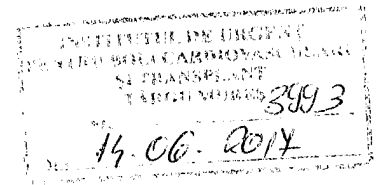 INSTITUTUL DE URGENȚĂ
PENTRU BOLI CARDIOVASCULARE
ȘI TRANSPLANT
TÂRGU MUREȘ
3993
14.06.2017